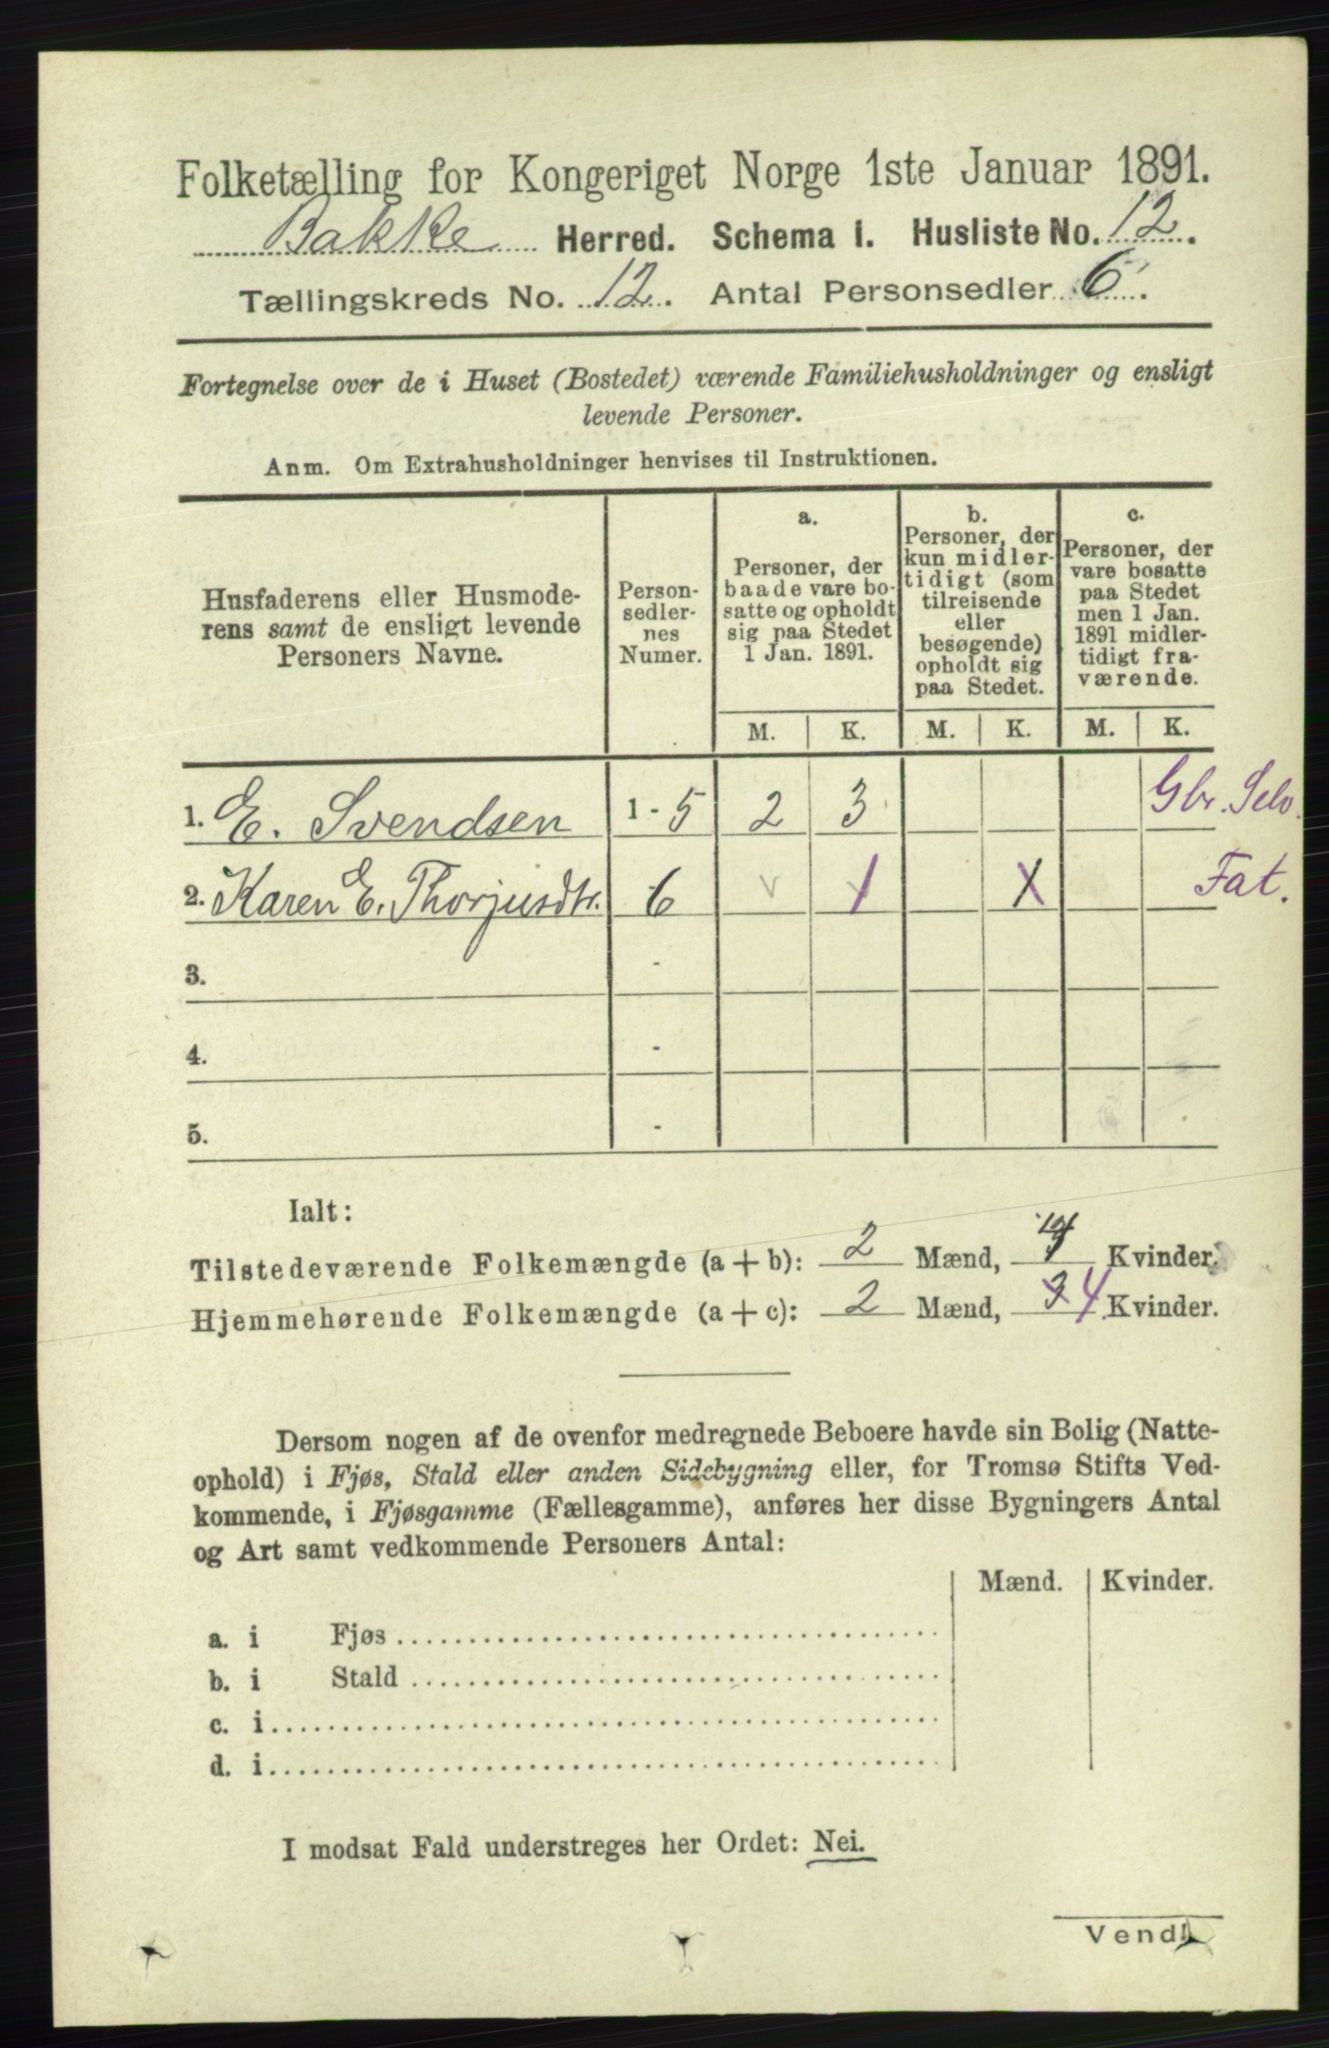 Folketælling for Kongeriget Norge 1ste Januar 1891.
Bakke Herred. Schema I. Husliste No. 12.
Tællingskreds No. 12. Antal Personsedler 6.
Fortegnelse over de i Huset (Bostedet) værende Familiehusholdninger og ensligt
levende Personer.
Anm. Om Extrahusholdninger henvises til Instruktionen.
Husfaderens eller Husmode-
rens samt de ensligt levende
Personers Navne.
Person-
sedler-
nes
Numer.
a.
Personer, der
baade vare bo-
satte og opholdt
sig paa Stedet
1 Jan. 1891.
b.
Personer, der
kun midler-
tidigt (som
tilreisende
eller
besøgende)
opholdt sig
paa Stedet.
c.
Personer, der
vare bosatte
paa Stedet
men 1 Jan.
1891 midler-
tidigt fra-
værende.
M. K. M. K. M. K.
1. E. Svendsen 1 - 5 2 3 Gbr. Selv.
2. Karen E. Thorjusdtr. 6 v 1 X Fat.
3. -
4. -
5. -
Ialt:
Tilstedeværende Folkemængde (a + b): 2 Mænd, 4 Kvinder.
Hjemmehørende Folkemængde (a + c): 2 Mænd, 3 4 Kvinder.
Dersom nogen af de ovenfor medregnede Beboere havde sin Bolig (Natte-
ophold) i Fjøs, Stald eller anden Sidebygning eller, for Tromsø Stifts Ved-
kommende, i Fjøsgamme (Fællesgamme), anføres her disse Bygningers Antal
og Art samt vedkommende Personers Antal:
Mænd. Kvinder.
a. i Fjøs
b. i Stald
c. i
d. i
I modsat Fald understreges her Ordet: Nei.
Vend!